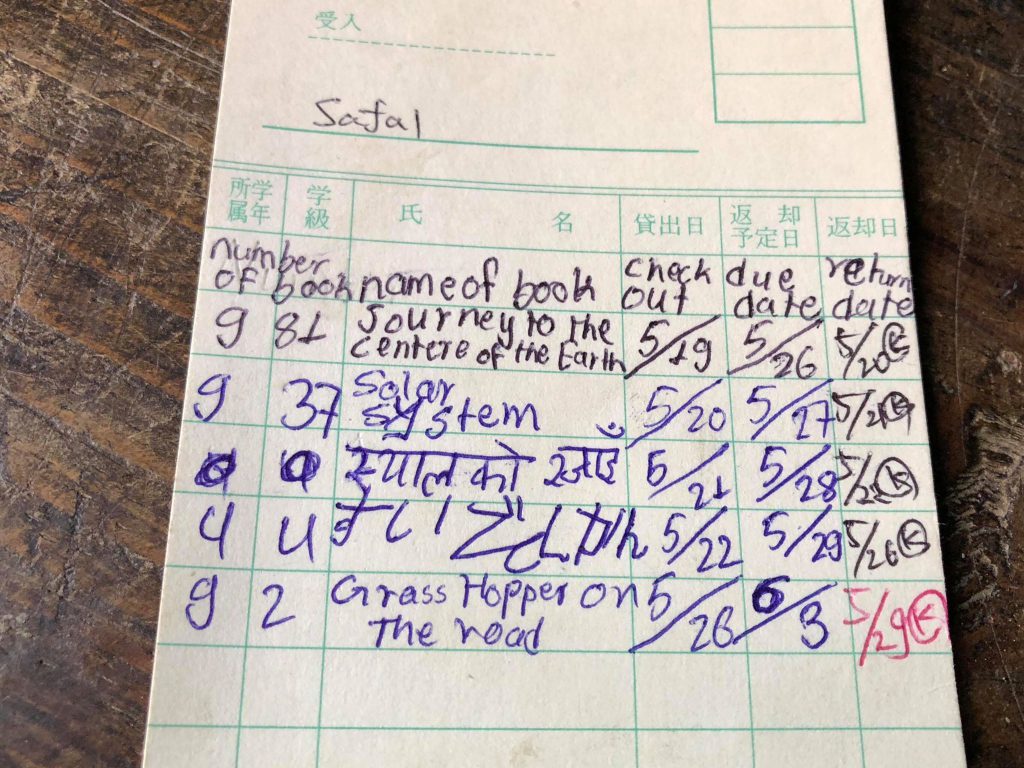 受入
Safal
所属 学年 学級 氏名 貸出日 返却予定日 返却日
number of book name of book check out due date return date
9 81 Journey to the 5/19 5/26 5/20 K
centere of the Earth
9 37 Solar 5/20 5/27 5/2 K
System
स्यालको 5/21 5/28 5/2 K
4 4 5/22 5/29 5/26 K
9 2 Grass Hopper on 5/26 6/3 5/29 K
The road